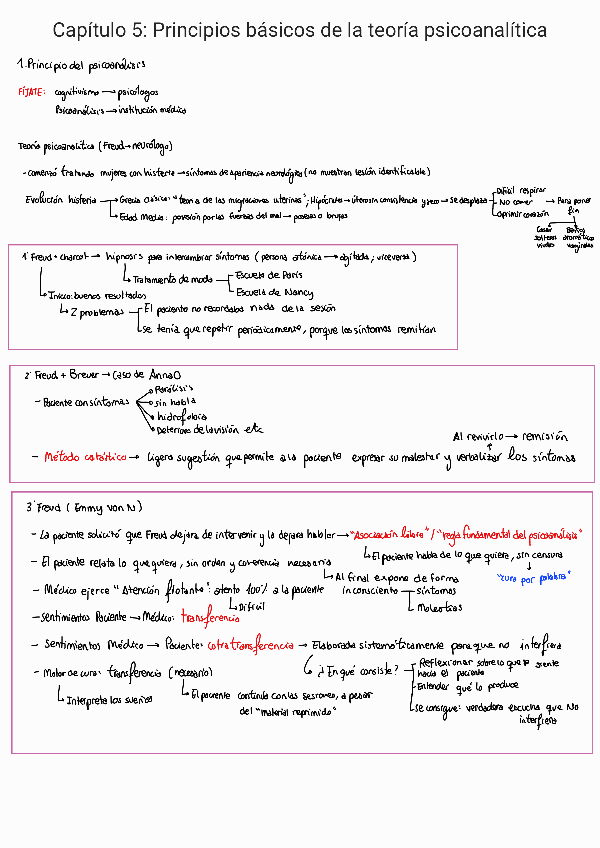 Capítulo 5: Principios básicos de la teoría psicoanalítica
1. Principio del psicoanálisis
FÍJATE: cognitivismo → psicólogos
Psicoanálisis → institución médica
Teoría psicoanalítica (Freud → neurólogo)
- comenzó tratando mujeres con histeria → síntomas de apariencia neurológica (no muestran lesión identificable)
Evolución histeria → Grecia clásica: "teoría de las migraciones uterinas"; Hipócrates → útero sin consistencia y seco → se desplaza
Difícil respirar
No comer → Para poner fin
oprimir corazón
Casar solteras viudas
Baños aromáticos vaginales
→ Edad Media: posesión por las fuerzas del mal → poseías o brujas
1' Freud + Charcot → hipnosis para intercambiar síntomas (persona atónica → agitada; viceversa)
→ Tratamiento de moda
Escuela de París
Escuela de Nancy
→ Inicio: buenos resultados
→ 2 problemas
El paciente no recordaba nada de la sesión
se tenía que repetir periódicamente, porque los síntomas remitían
2' Freud + Breuer → Caso de Anna O
- Paciente con síntomas
Parálisis
sin habla
hidrofobia
Deterioro de la visión etc
Al revivirlo → remisión
- Método catártico → Ligera sugestión que permite a la paciente expresar su malestar y verbalizar los síntomas
3' Freud (Emmy Von N)
- La paciente solicitó que Freud dejara de intervenir y la dejara hablar → "Asociación libre" / "regla fundamental del psicoanálisis"
→ El paciente habla de lo que quiera, sin censura
"cura por palabra"
- El paciente relata lo que quiera, sin orden y coherencia necesaria
→ Al final expone de forma inconsciente
síntomas
Molestias
- Médico ejerce "Atención flotante": atento 100% a la paciente
→ Difícil
- Sentimientos Paciente → Médico: transferencia
- Sentimientos Médico → Paciente: cotratransferencia → Elaborada sistemáticamente para que no interfiera
→ ¿En qué consiste?
Reflexionar sobre lo que se siente hacia el paciente
Entender qué lo produce
se consigue: verdadera escucha que NO interfiera
- Motor de cura: transferencia (necesario)
→ Interpreta los sueños
→ El paciente continúa con las sesiones, a pesar del "material reprimido"